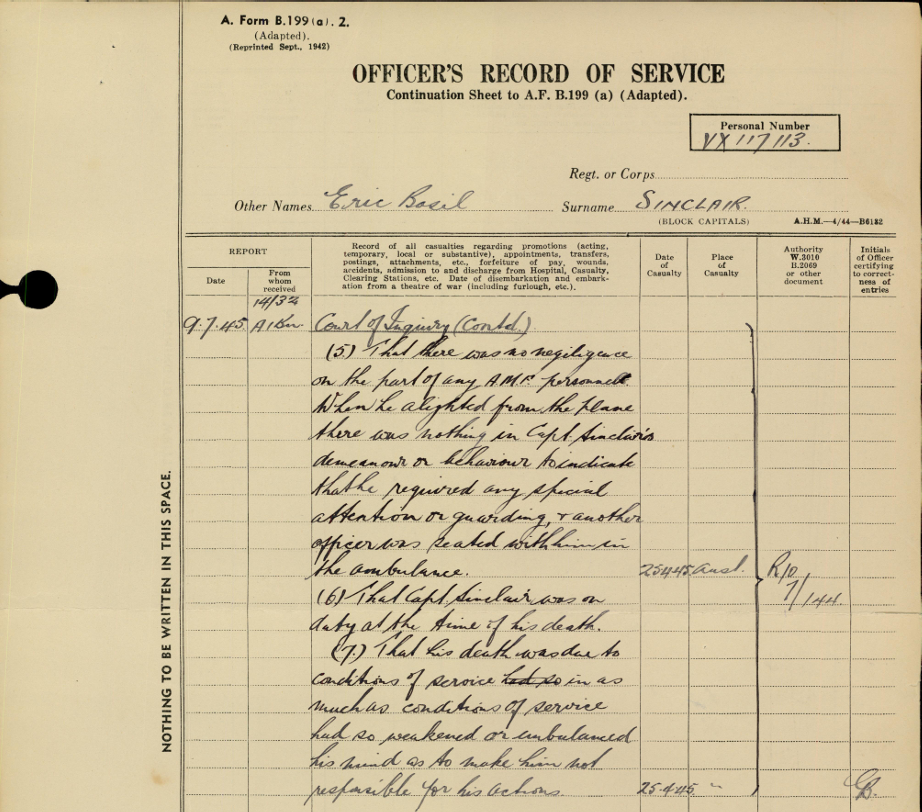 A. Form B.199(a). 2.
(Adapted).
(Reprinted Sept., 1942)
OFFICER'S RECORD OF SERVICE
Continuation Sheet to A.F. B.199 (a) (Adapted).
Personal Number
VX 117113.
Regt. or Corps
Other Names Eric Basil Surname SINCLAIR.
(BLOCK CAPITALS) A.H.M.—4/44—B6132
REPORT
Date
From
whom
received
Record of all casualties regarding promotions (acting,
temporary, local or substantive), appointments, transfers,
postings, attachments, etc., forfeiture of pay, wounds,
accidents, admission to and discharge from Hospital, Casualty,
Clearing Stations, etc. Date of disembarkation and embark-
ation from a theatre of war (including furlough, etc.).
Date
of
Casualty
Place
of
Casualty
Authority
W.3010
B.2069
or other
document
Initials
of Officer
certifying
to correct-
ness of
entries
9.7.45 Court of Inquiry (Contd.)
(5) That there was no negiligence
on the part of any A.M.F. personnel.
When he alighted from the plane
there was nothing in Capt. Sinclair's
demeanour or behaviour to indicate
that he required any special
attention or guarding, & another
officer was seated with him in
the ambulance. 25.4.45 Aust. R/O
7/144.
(6) That Capt Sinclair was on
duty at the time of his death.
(7.) That his death was due to
conditions of service had so in as
much as conditions of service
had so weakened or unbalanced
his mind as to make him not
responsible for his actions. 25.4.45 "
NOTHING TO BE WRITTEN IN THIS SPACE.